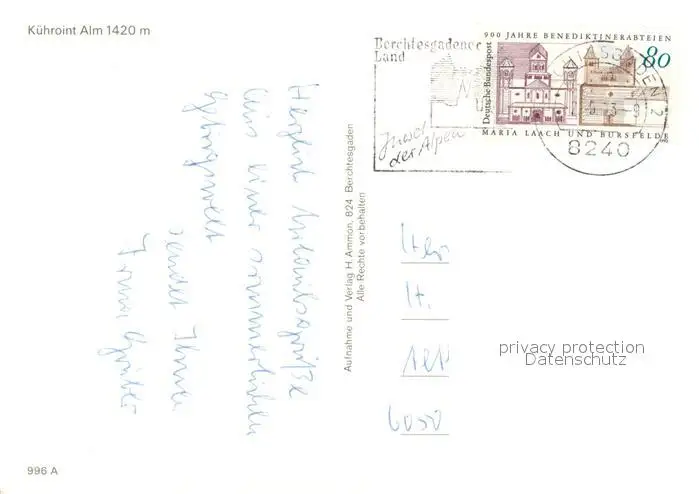 Kühroint Alm 1420 m
Herzliche Urlaubsgrüße
aus einer sommerlichen
Gebirgswelt
sendet Ihnen
996 A
Aufnahme und Verlag H. Ammon, 824 Berchtesgaden
Alle Rechte vorbehalten
Berchtesgadener
Land
Insel
der Alpen
900 JAHRE BENEDIKTINERABTEIEN
80
Deutsche Bundespost
MARIA LAACH UND BURSFELDE
8240
privacy protection
Datenschutz